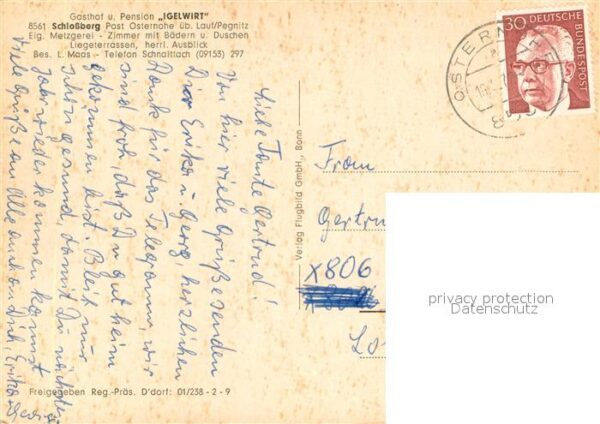 Gasthof u. Pension „IGELWIRT"
8561 Schloßberg Post Osternohe üb. Lauf/Pegnitz
Eig. Metzgerei - Zimmer mit Bädern u. Duschen
Liegeterrassen, herrl. Ausblick
Bes. L. Maas - Telefon Schnaittach (09153) 297
Liebe Tante Gertrud!
Von hier viele Grüße senden
Dir Erika u. Georg, herzlichen
Dank für das Telegramm, wir
sind froh, daß Du gut heim
gekommen bist. Bleib nur
schön gesund, damit Du nächstes
Jahr wieder kommen kannst
Viele Grüße an Alle und an Dich, Erika Georg
Freigegeben Reg.-Präs. D'dorf: 01/238 - 2 - 9
Verlag Flugbild GmbH., Bonn
OSTERN
30 DEUTSCHE
BUNDESPOST
Frau
Gertru
X806
privacy protection
Datenschutz